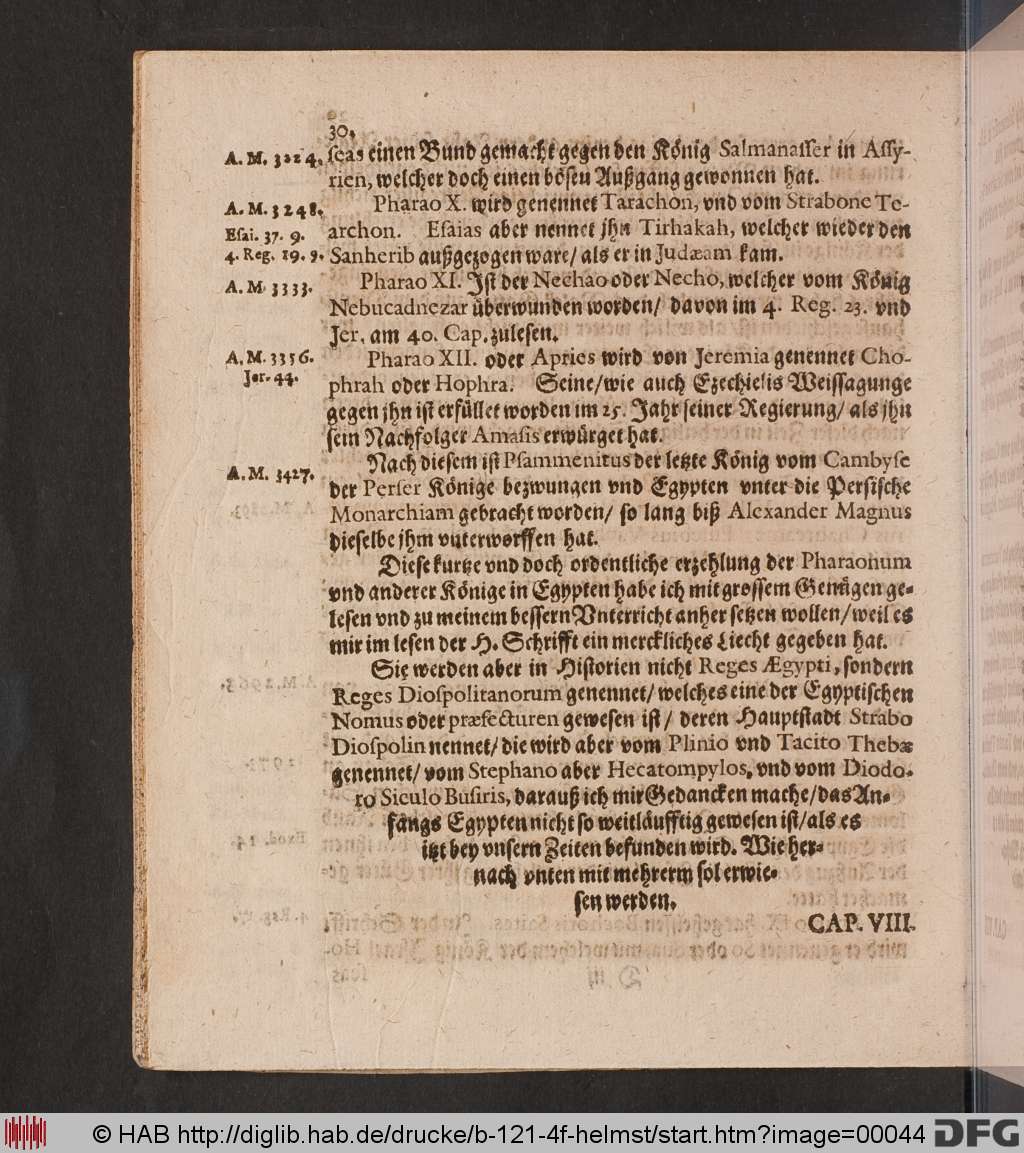 30.
A. M. 3224. ſeas einen Bund gemacht gegen den König Salmanaſſer in Aſſy-
rien, welcher doch einen böſen Außgang gewonnen hat.
A. M. 3248. Pharao X. wird genennet Tarachon, vnd vom Strabone Te-
Eſai. 37. 9. archon. Eſaias aber nennet jhn Tirhakah, welcher wieder den
4. Reg. 19. 9. Sanherib außgezogen ware/ als er in Judæam kam.
A. M. 3333. Pharao XI. Jſt der Nechao oder Necho, welcher vom König
Nebucadnezar überwunden worden/ davon im 4. Reg. 23. vnd
Jer. am 40. Cap. zuleſen.
A. M. 3356. Pharao XII. oder Apries wird von Jeremia genennet Cho-
Jer. 44. phrah oder Hophra. Seine/ wie auch Ezechielis Weiſſagunge
gegen jhn iſt erfüllet worden im 25. Jahr ſeiner Regierung/ als jhn
ſein Nachfolger Amaſis erwürget hat.
A. M. 3427. Nach dieſem iſt Pſammenitus der letzte König vom Cambyſe
der Perſer Könige bezwungen vnd Egypten vnter die Perſiſche
Monarchiam gebracht worden/ ſo lang biß Alexander Magnus
dieſelbe jhm vnterworffen hat.
Dieſe kurtze vnd doch ordentliche erzehlung der Pharaonum
vnd anderer Könige in Egypten habe ich mit groſſem Genügen ge-
leſen vnd zu meinem beſſern Vnterricht anher ſetzen wollen/ weil es
mir im leſen der H. Schrifft ein merckliches Liecht gegeben hat.
Sie werden aber in Hiſtorien nicht Reges Ægypti, ſondern
Reges Dioſpolitanorum genennet/ welches eine der Egyptiſchen
Nomus oder præfecturen geweſen iſt/ deren Hauptſtadt Strabo
Dioſpolin nennet/ die wird aber vom Plinio vnd Tacito Thebæ
genennet/ vom Stephano aber Hecatompylos, vnd vom Diodo-
ro Siculo Buſiris, darauß ich mir Gedancken mache/ das An-
fangs Egypten nicht ſo weitläufftig geweſen iſt/ als es
itzt bey vnſern Zeiten befunden wird. Wie her-
nach vnten mit mehrerm ſol erwie-
ſen werden.
CAP. VIII.
© HAB http://diglib.hab.de/drucke/b-121-4f-helmst/start.htm?image=00044 DFG